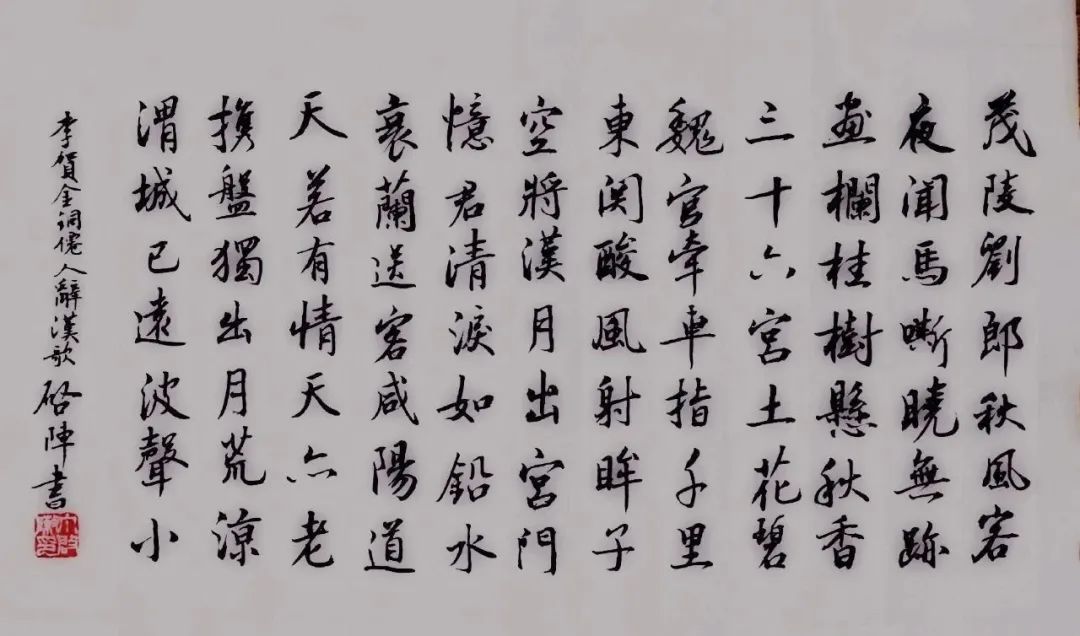 茂陵劉郎秋風客
夜聞馬嘶曉無跡
畫欄桂樹懸秋香
三十六宮土花碧
魏官牽車指千里
東関酸風射眸子
空將漢月出宮門
憶君清淚如鉛水
衰蘭送客咸陽道
天若有情天亦老
擕盤獨出月荒涼
渭城已遠波聲小
李賀金詞僊人辭漢歌 啓陣書